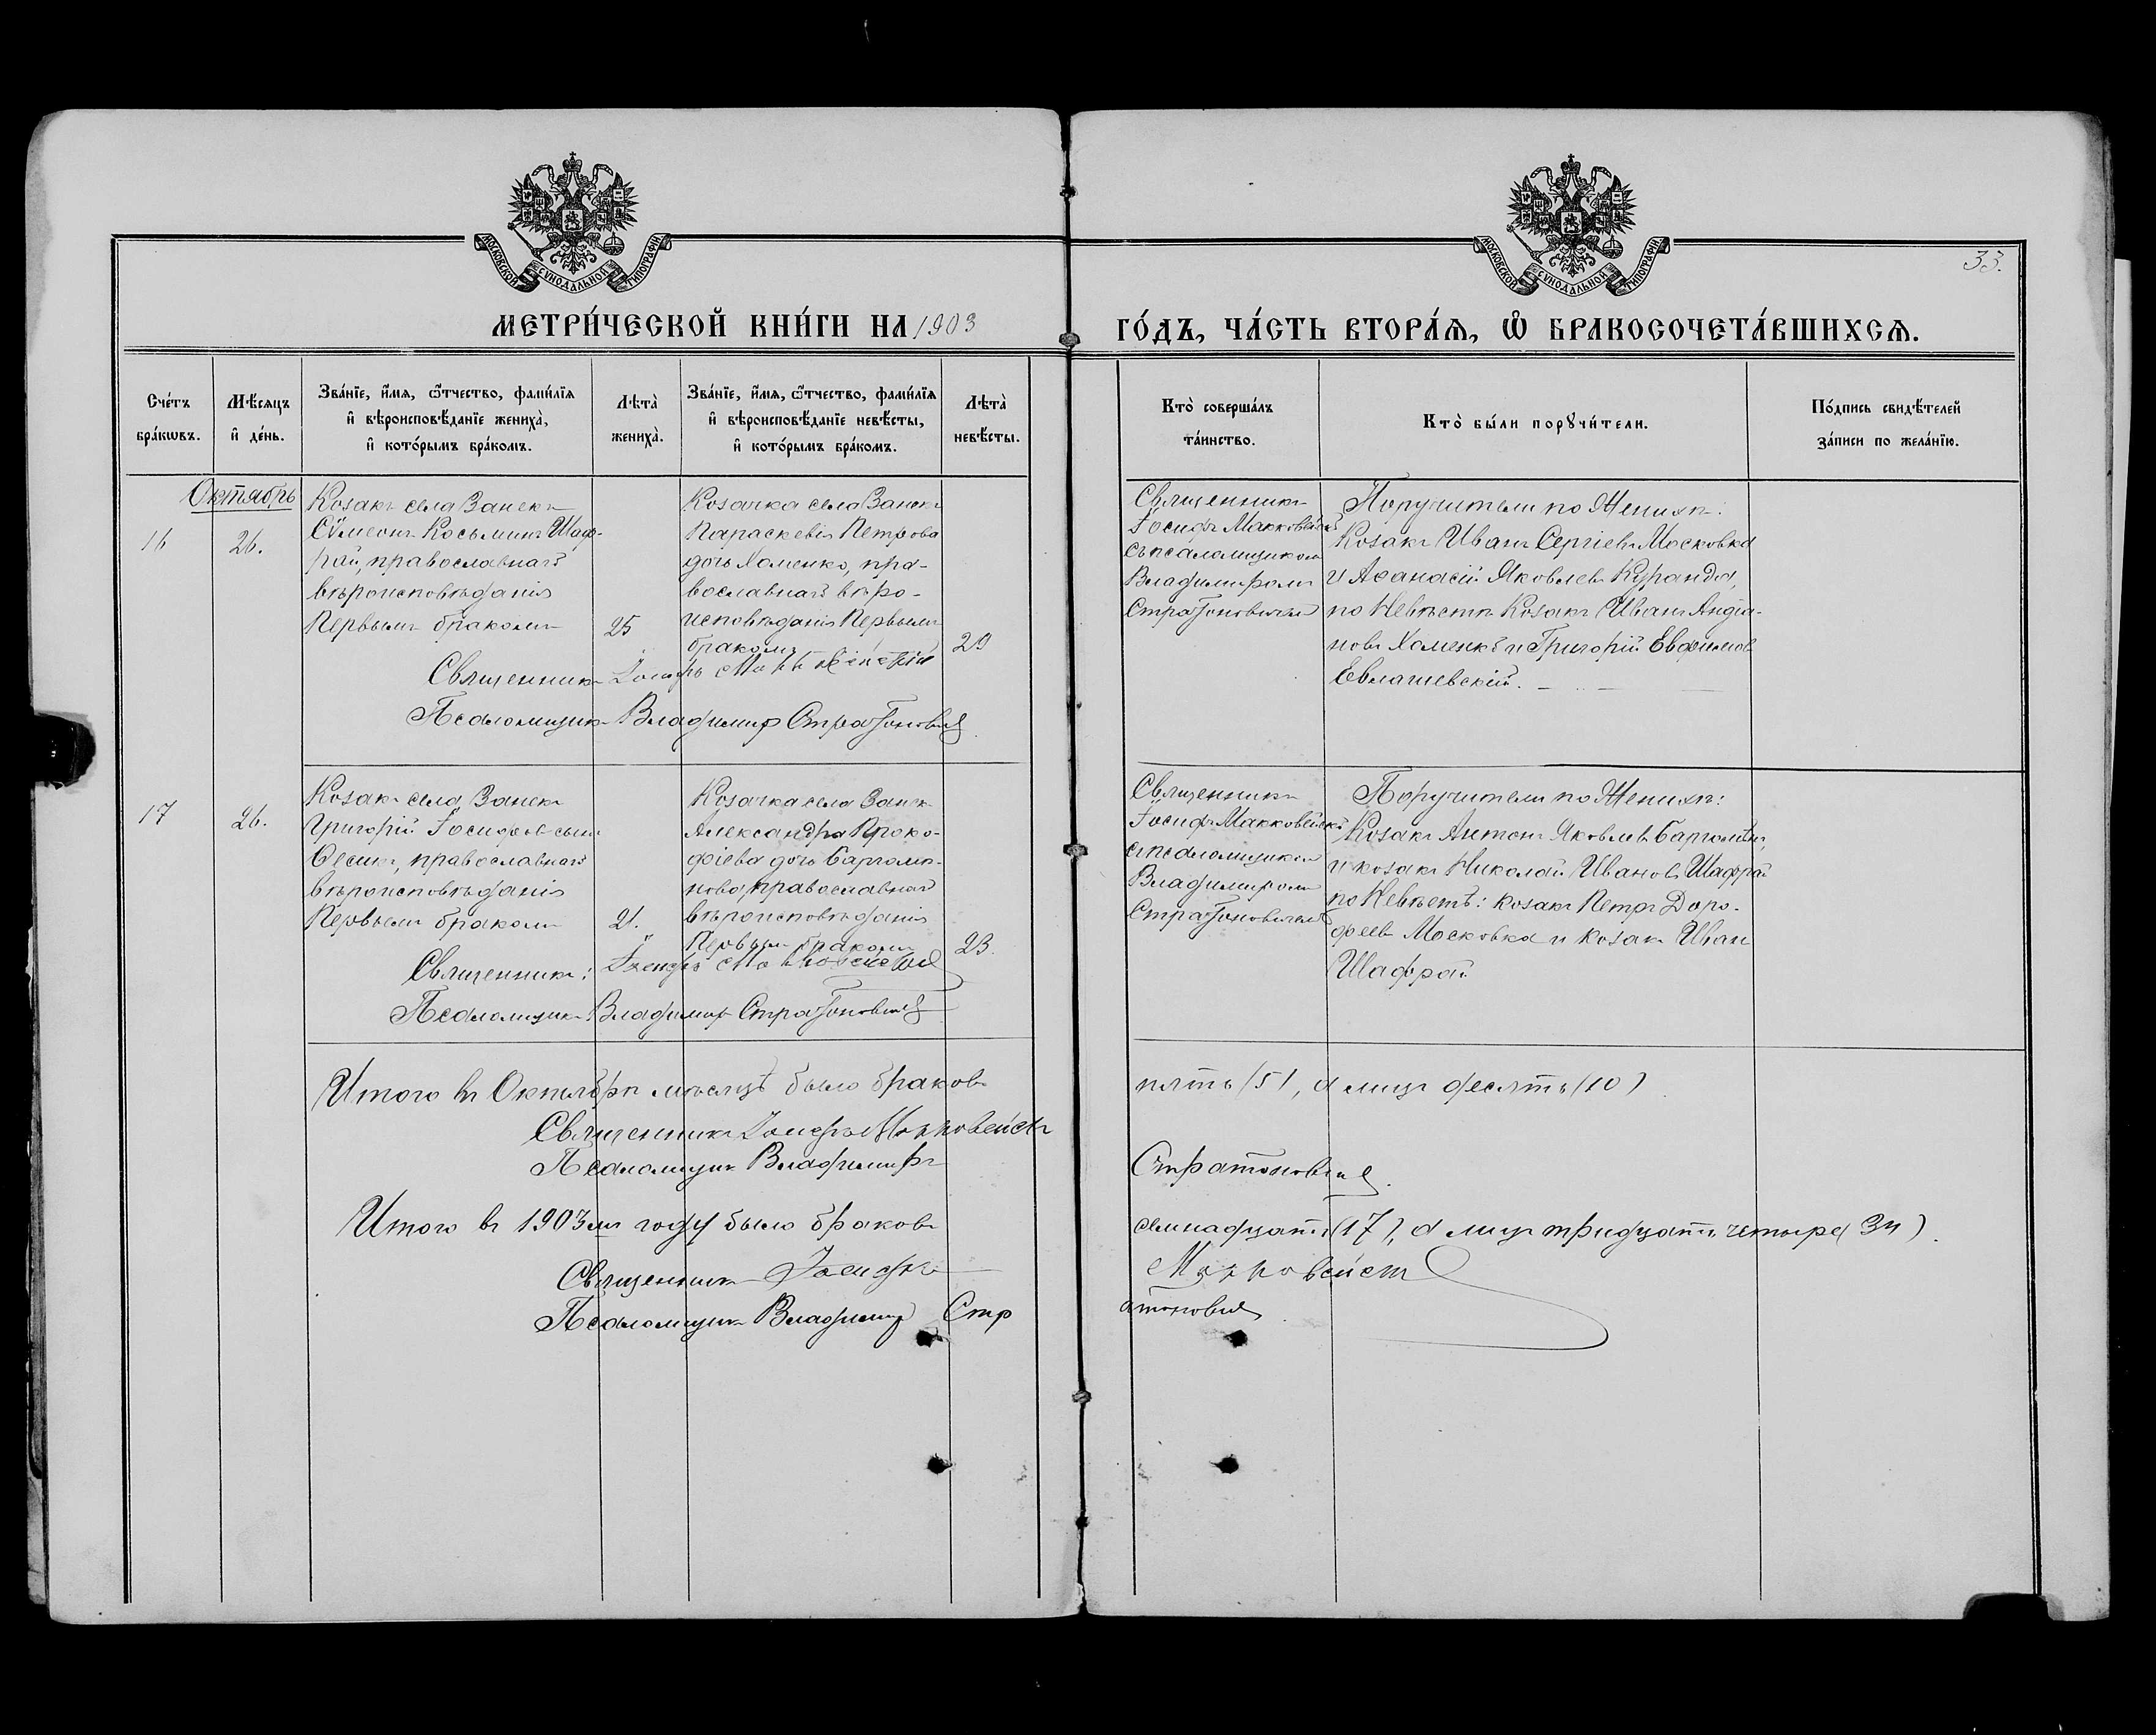 МОСКОВСКОЙ СѴНОДАЛЬНОЙ ТИПОГРАФІИ
МОСКОВСКОЙ СѴНОДАЛЬНОЙ ТИПОГРАФІИ
33.
МЕТРИ́ЧЕСКОЙ КНИ́ГИ НА 1903
ГО́ДЪ, ЧА́СТЬ ВТОРА́Ѧ, Ѽ БРАКОСОЧЕТА́ВШИХСѦ.
Сче́тъ
бра́кѡвъ.
Мѣ́сяцъ
и҆ де́нь.
Зва́нїе, и҆́мя, ѻ҆́тчество, фами́лїя
и҆ вѣроисповѣ́данїе жениха̀,
и҆ кото́рымъ бра́комъ.
Лѣта̀
жениха̀.
Зва́нїе, и҆́мя, ѻ҆́тчество, фами́лїя
и҆ вѣроисповѣ́данїе невѣ́сты,
и҆ кото́рымъ бра́комъ.
Лѣта̀
невѣ́сты.
Кто̀ соверша́лъ
та́инство.
Кто̀ бы́ли порꙋчи́тели.
По́дпись свидѣ́телей
за́писи по жела́нїю.
Октябрь
16
26.
Козакъ села Занекъ
Сѵмеонъ Косьминъ Шаф-
рай, православнаго
вѣроисповѣданія
Первымъ бракомъ
25
Козачка села Занекъ
Параскевія Петрова
дочь Хоменко, пра-
вославнаго вѣро-
исповѣданія Первымъ
бракомъ
29
Священникъ
Іосифъ Маккавейскій
съ псаломщикомъ
Владимиромъ
Стратоновичемъ
Поручители по Женихѣ:
Козакъ Иванъ Сергіевъ Московка
и Аѳанасій Яковлевъ Куранда,
по Невѣстѣ Козакъ Иванъ Андіа-
новъ Хоменко и Григорій Евфимов
Евлашевскій.
Священникъ Іосифъ Маккавейскій
Псаломщикъ Владимир Стратоновичъ
17
26.
Козакъ села Занекъ
Григорій Іосифовъ сынъ
Ѳесикъ, православнаго
вѣроисповѣданія
Первымъ бракомъ
21.
Козачка села Занекъ
Александра Проко-
фіева дочь Бартоло-
нова, православнаго
вѣроисповѣданія
Первымъ бракомъ
23.
Священникъ
Іосифъ Маккавейскій
съ псаломщикомъ
Владимиромъ
Стратоновичемъ
Поручители по Женихѣ:
Козакъ Антонъ Яковлевъ
и козакъ Николай Ивановъ Шафрай
по Невѣстѣ: козакъ Петръ Доро-
феевъ Московка и козакъ Иван
Шафрай
Священникъ: Іосифъ Маккавейскій
Псаломщикъ: Владимир Стратоновичъ
Итого въ Октябрѣ мѣсяцѣ было браковъ пять (5), а лицъ десять (10)
Священникъ Іосифъ Маккавейскій
Псаломщикъ Владимиръ Стратоновичъ.
Итого въ 1903мъ году было браковъ семнадцать (17), а лицъ тридцать четыре (34).
Священникъ Іосифъ Маккавейскій
Псаломщикъ Владимир Стратоновичъ